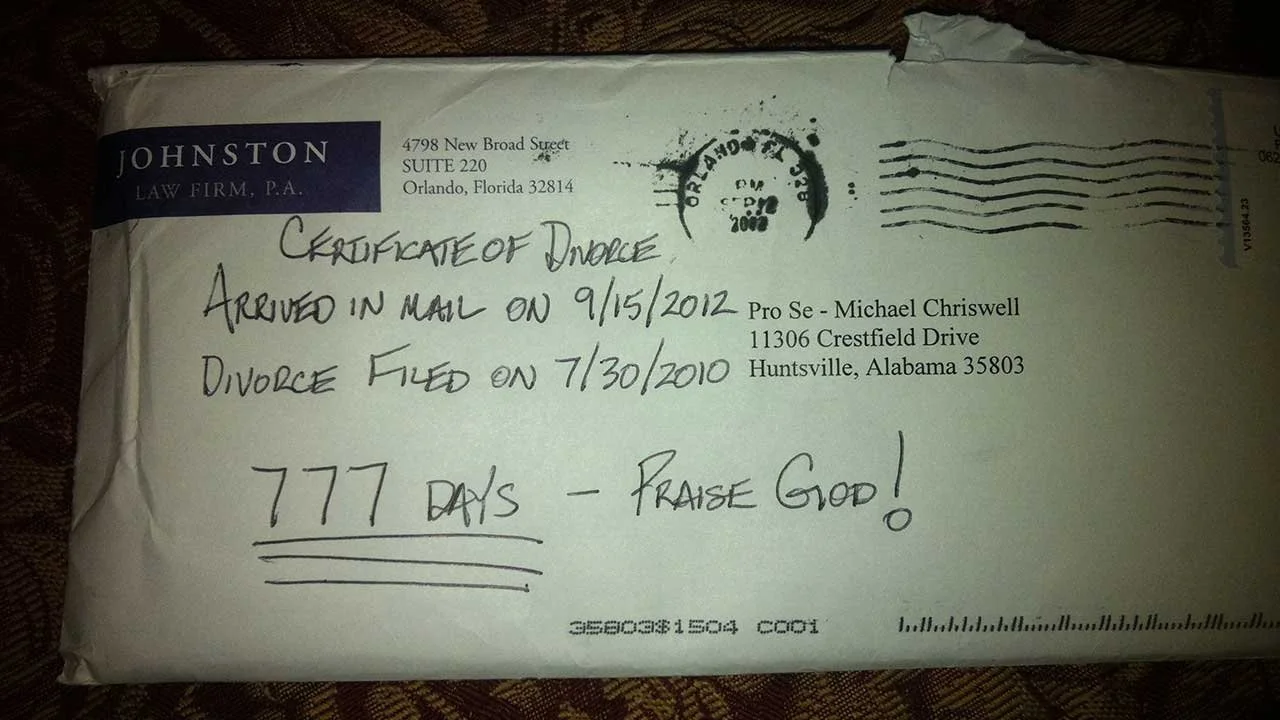 JOHNSTON
LAW FIRM, P.A.
4798 New Broad Street
SUITE 220
Orlando, Florida 32814
ORLANDO FL 328
PM
CERTIFICATE OF DIVORCE
ARRIVED IN MAIL ON 9/15/2012
DIVORCE FILED ON 7/30/2010
Pro Se - Michael Chriswell
11306 Crestfield Drive
Huntsville, Alabama 35803
777 DAYS - PRAISE GOD!
35803$1504 C001
V13564.23